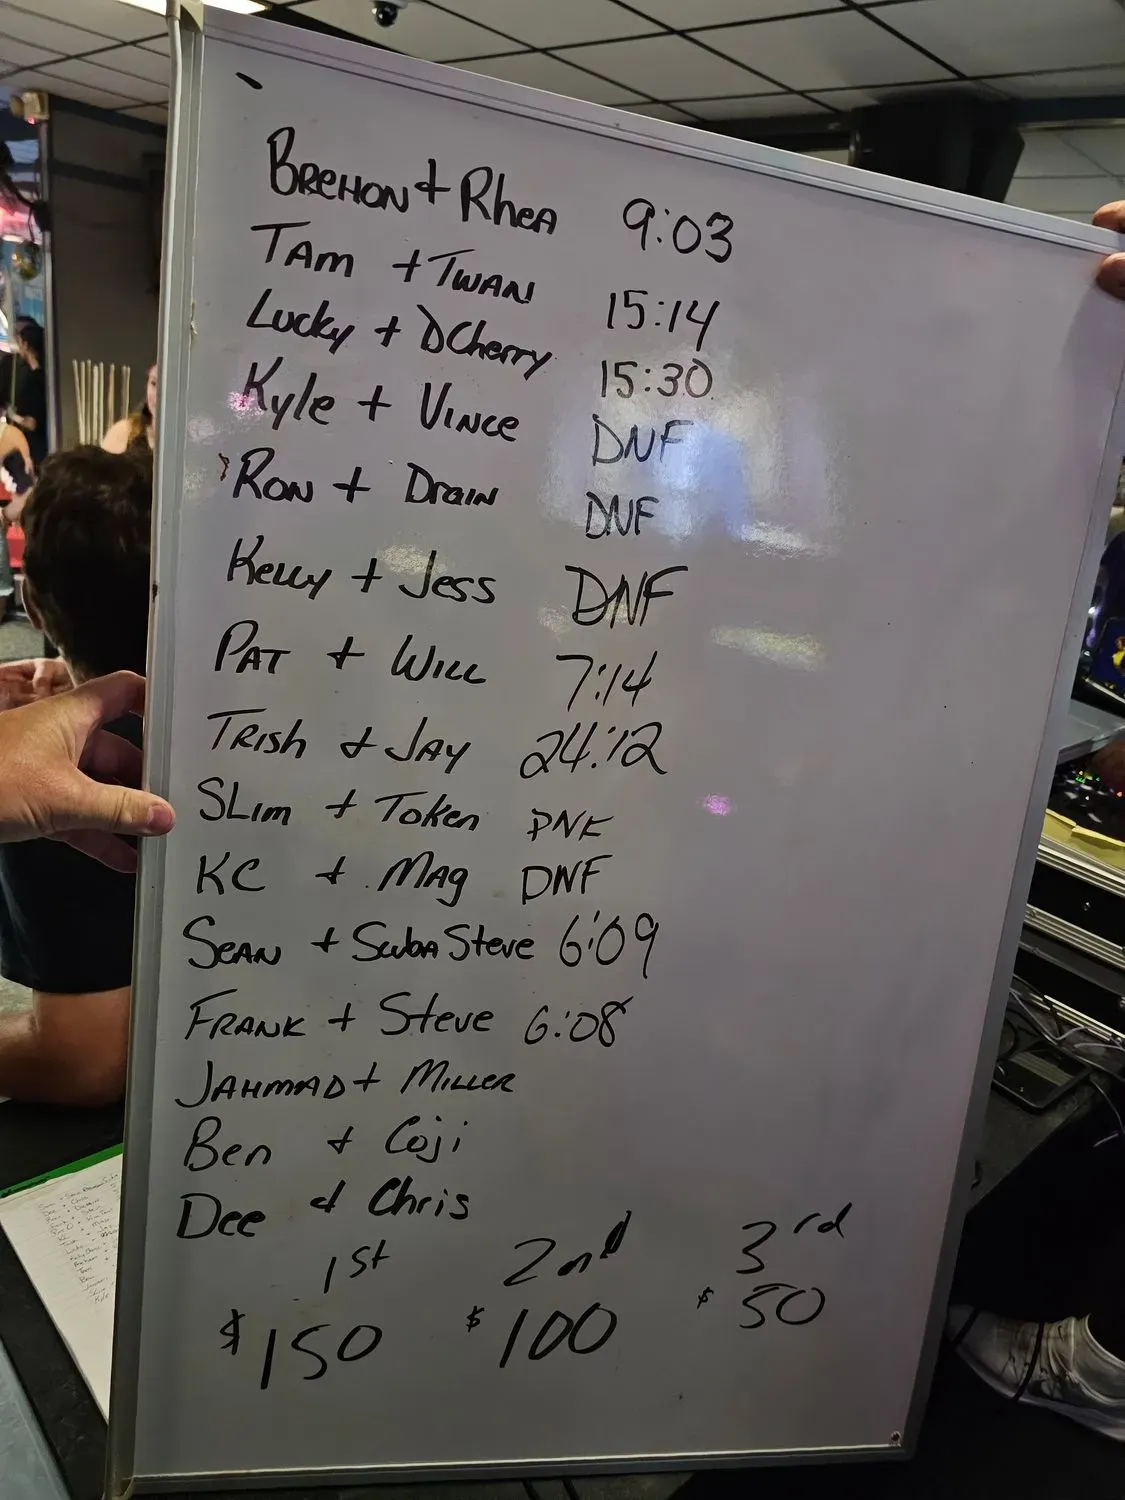 BREHON + RheA 9:03
TAm + TWAN 15:14
Lucky + DCherry 15:30
Kyle + VINCe DNF
RON + Drain DNF
Kelly + Jess DNF
PAT + WILL 7:14
TRISh & JAY 24:12
SLim + Token DNF
KC & MAg DNF
SeAN + ScubA Steve 6:09
FRANK + Steve 6:08
JAHMAD + MILLER
Ben & Coji
Dee & Chris
1st 2nd 3rd
$150 $100 $50